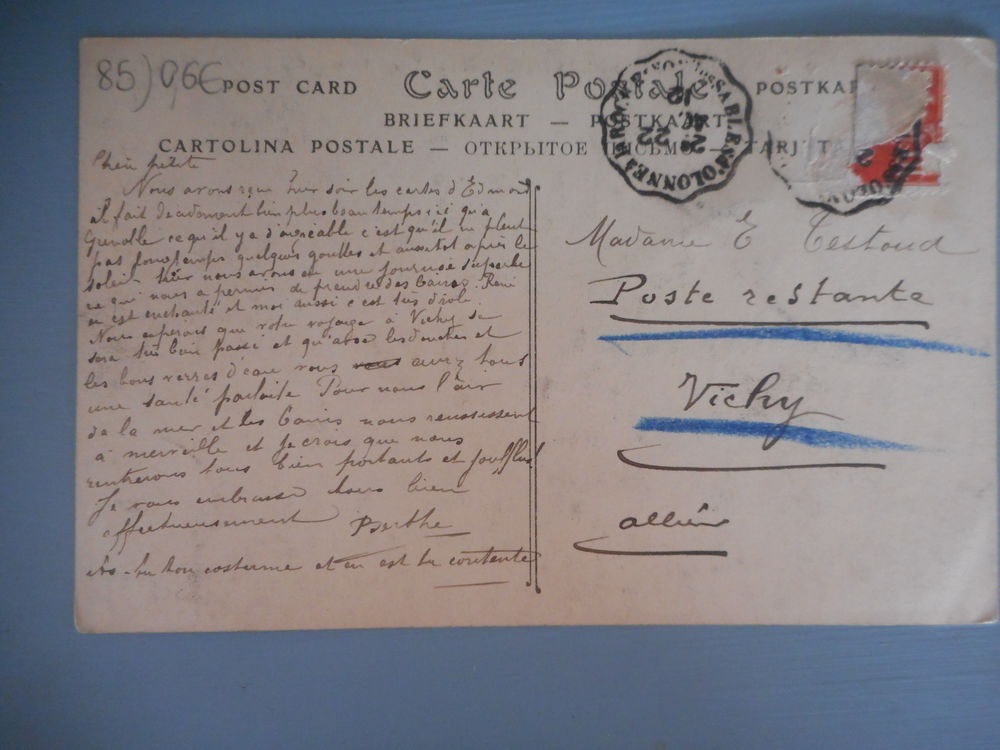 85) 0,6€
POST CARD Carte Postale POSTKAR
BRIEFKAART — POSTKAART
CARTOLINA POSTALE — ОТКРЫТОЕ ПИСЬМО — TARJETA
Chère petite
Nous avons reçu hier soir les cartes d'Edmond
il fait décidément bien plus beau temps ici qu'a
Grenoble ce qu'il y a d'agréable c'est qu'il ne pleut
pas longtemps quelques gouttes et aussitot après le
soleil. Hier nous avons eu une journée superbe
ce qui nous a permis de prendre des bains. René
en est enchanté et moi aussi c'est très drole.
Nous esperons que votre voyage à Vichy se
sera très bien passé et qu'avec les douches et
les bons verres d'eau vous aurez tous
une santé parfaite Pour nous l'air
de la mer et les bains nous reussissent
à merveille et je crois que nous
rentrerons tous bien portants et joufflus!
Je vous embrasse tous bien
affectueusement Berthe
As-tu ton costume et en est tu contente
Madame E Testoud
Poste restante
Vichy
allier
SABLES D'OLONNE